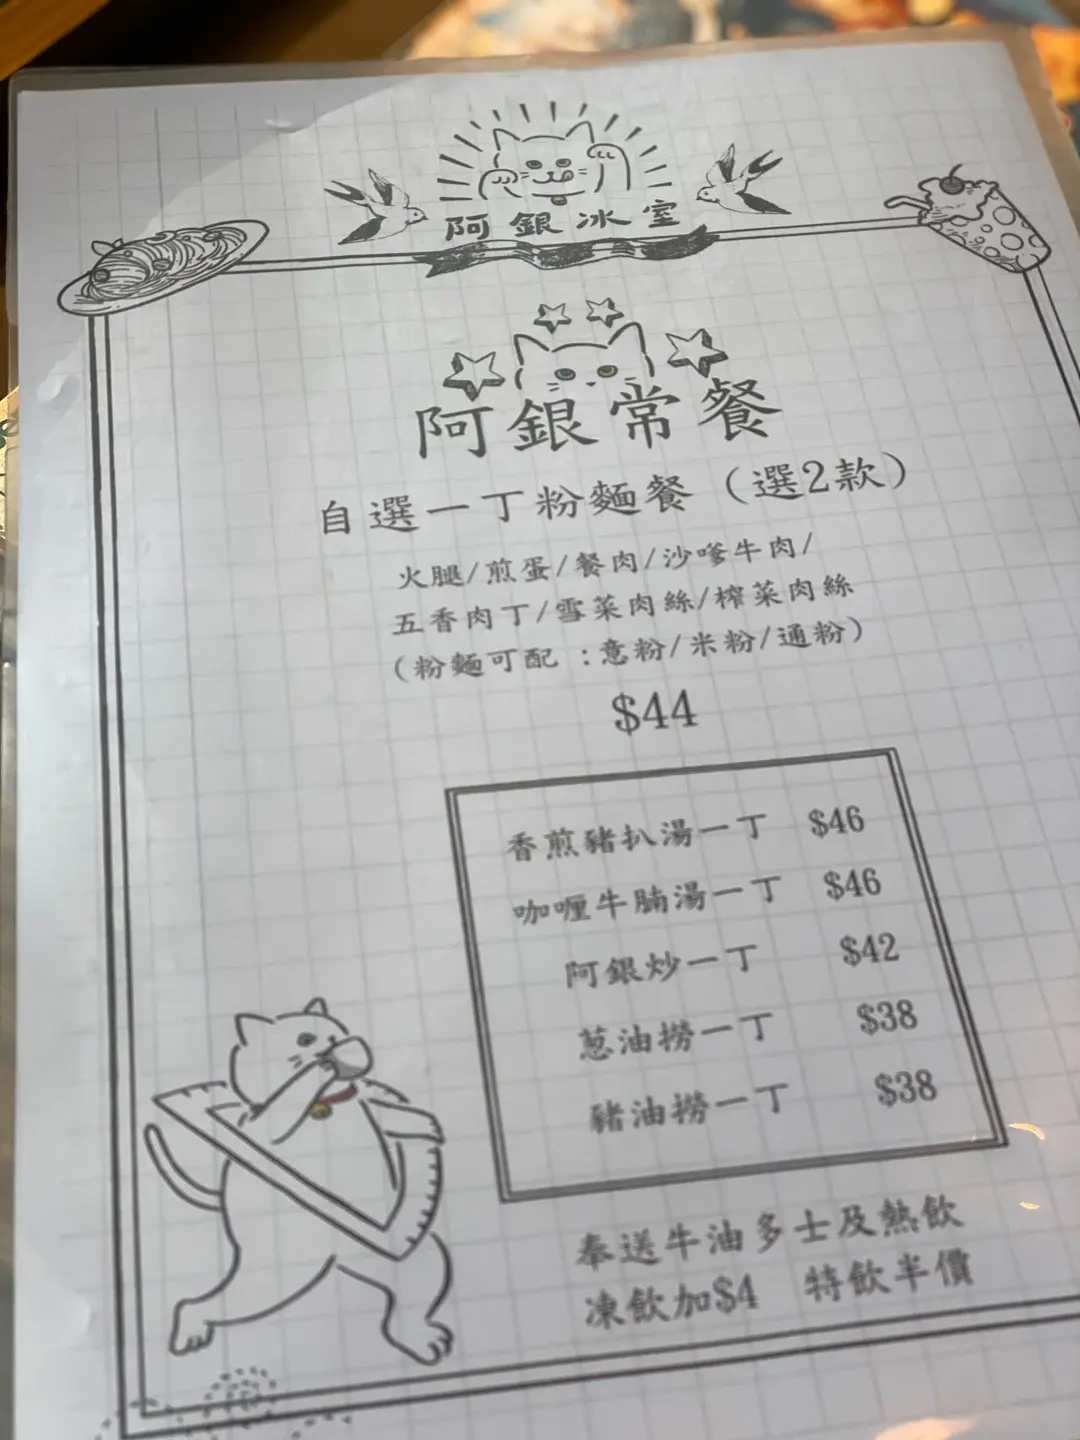 阿銀冰室
阿銀常餐
自選一丁粉麵餐（選2款）
火腿/煎蛋/餐肉/沙嗲牛肉/
五香肉丁/雪菜肉絲/榨菜肉絲
（粉麵可配：意粉/米粉/通粉）
$44
香煎豬扒湯一丁 $46
咖喱牛腩湯一丁 $46
阿銀炒一丁 $42
蔥油撈一丁 $38
豬油撈一丁 $38
奉送牛油多士及熱飲
凍飲加$4 特飲半價